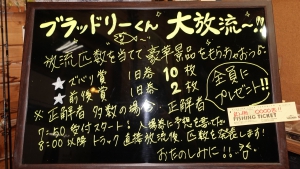 ブラッドリーくん 大放流〜!!
放流匹数を当てて豪華景品をもらっちゃおう
★ズバリ賞 1日券 10枚
★前後賞 1日券 2枚
全員にプレゼント!!
※正解者多数の場合 正解者
7:50 受付スタート! 入場券に予想を書いて
8:00以降 トラック直接放流後、匹数を発表します!
おたのしみに!!
FISHING TICKET